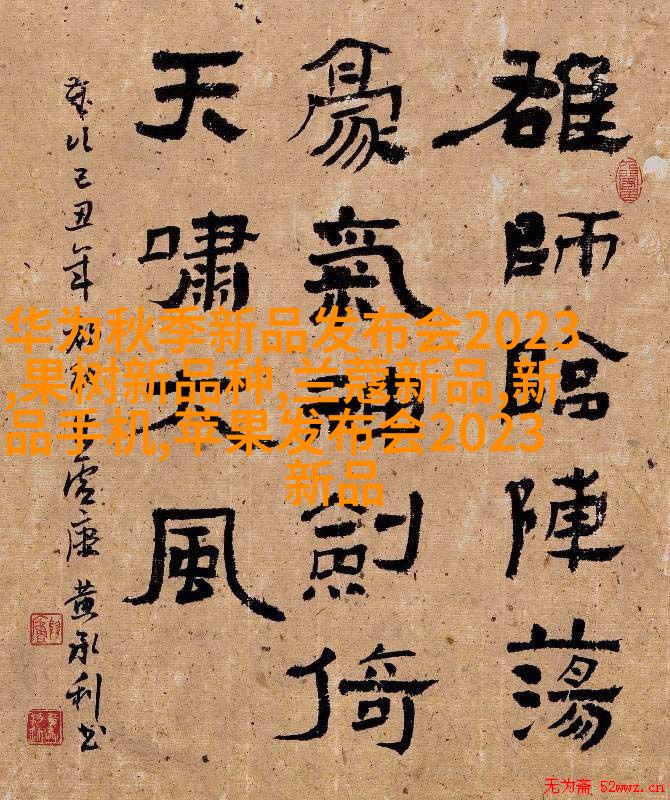 雄師臨陣蕩
豪氣劍倚
天嘯風
歲次己丑年
黄承利书
华为秋季新品发布会2023
,果树新品种,兰蔻新品,新
品手机,苹果发布会2023
新品
无为斋 52wwz.cn